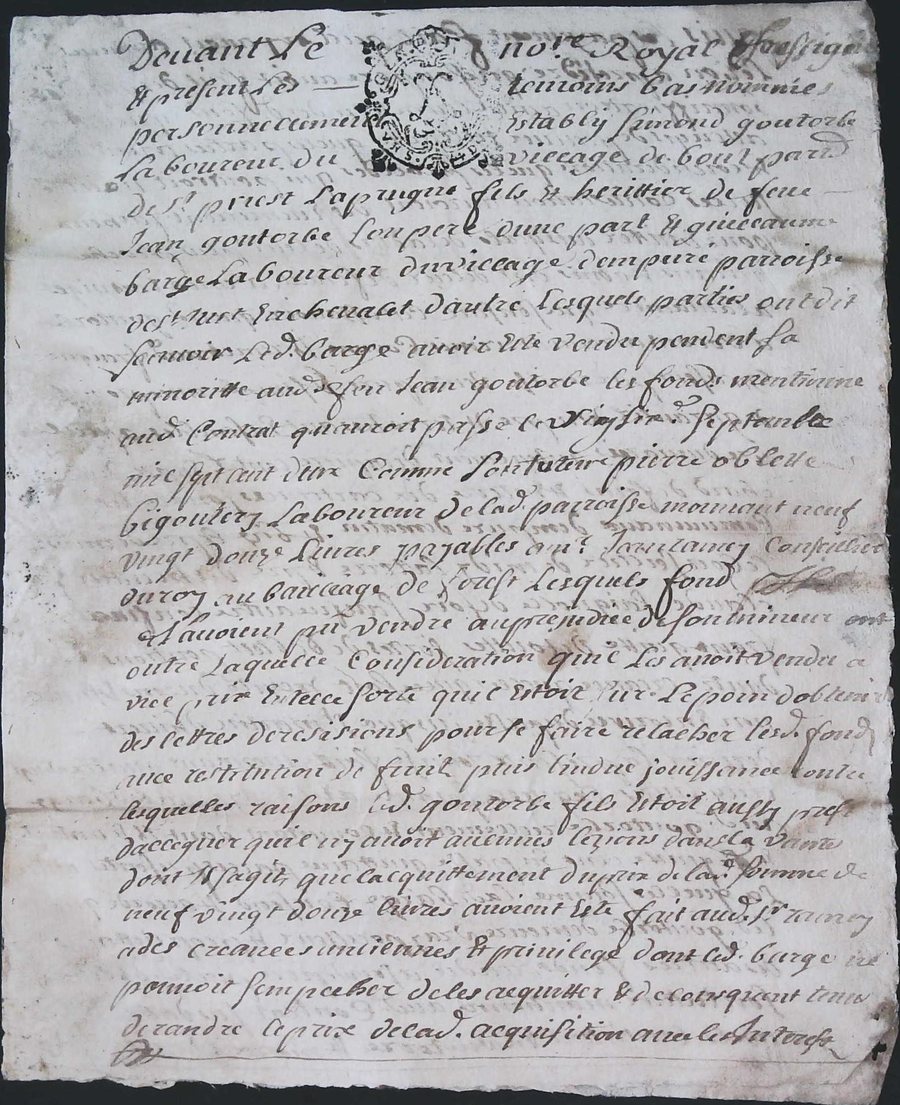 Devant Le nore Royal soussigné
& present Les temoins bas nommés
personnellement Estably simond goutorbe
Laboureur du village de bout parr
de st priest Laprugne fils & herittier de feue
Jean goutorbe son pere dune part & guillaume
barge Laboureur du village dempuré parroisse
de st Just En chevalet dautre Lesquels parties ont dit
scauoir Led. barge auoir Este vendu pendent sa
minoritte aud. feu Jean goutorbe les fonds mentionne
aud Contrat quauroit passe le septembre
mil sept cent deux Comme son tuteur pierre oblette
bigoulery Laboureur de lad. parroisse moienant neuf
vingt douze Liures payables a mr. Jean ramey Conseillier
du roy au bailliage de forest Lesquels fond
auoient pu vendre au prejudice de son mineur
outre Laquelle Consideration quil Les auoit vendu a
vice prix En telle sorte quil Estoit sur Le poin dobtenir
des lettres de resisions pour se faire relacher lesd. fond
auec restitution de fruit puis lindue jouissance contre
lesquelles raisons led. goutorbe fils Estoit aussy prest
dalleguer quil ny auoit aucunes lezions dans la vante
dont sagit, que lacquittement du prix de lad. somme de
neuf vingt douze liures auoient Esté fait aud. sr ramey
a des creances anciennes & privilege dont led. barge ne
pouuoit sempecher de les acquitter & de consequant tenu
de randre le prix de lad. acquisition auec les Interest